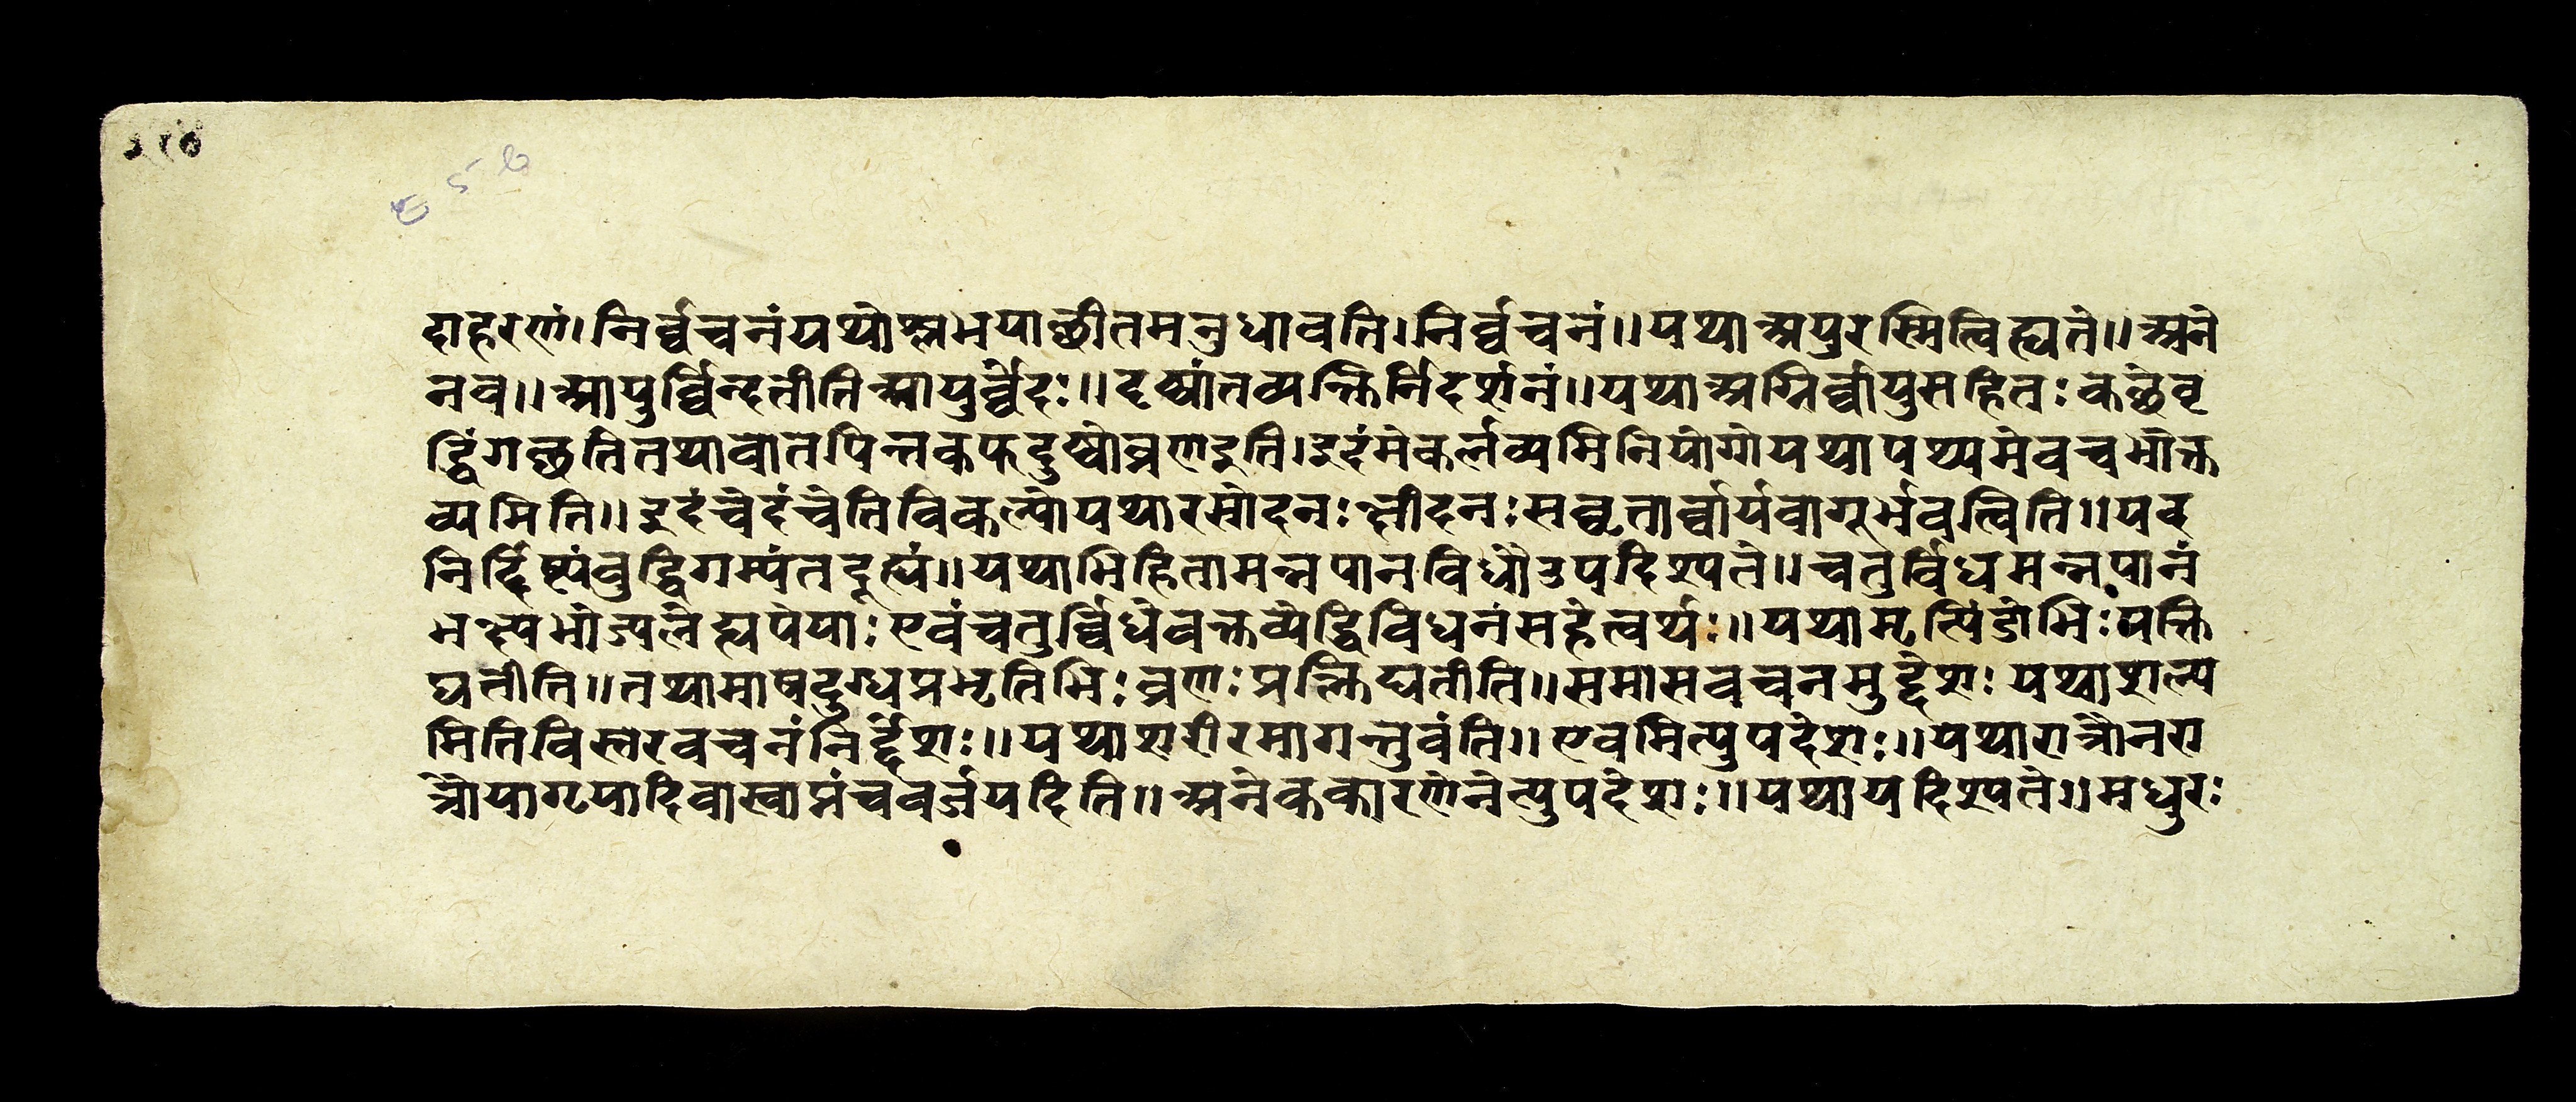 २१७
६५७
दाहरणं। निर्व्वचनं यथोष्णभयाछीतमनुधावति। निर्व्वचनं॥ यथा अपुरस्मित्विद्यते॥ अने
नव॥ आयुर्व्विन्दतीति आयुर्व्वेदः॥ दृष्टांतव्यक्तिर्निदर्शनं॥ यथा अग्निर्व्वायुसहितः कछेवृ
द्धिंगछतितथावातपित्तकफदुष्टोव्रणइति। इदंमेकर्त्तव्यमितिनियोगोयथापथ्यमेवचभोक्त
व्यमिति॥ इदंचेदंचेतिविकल्पोयथारसोदनःक्षीदनःसघृतार्व्वार्यवागूर्भवत्विति॥ यद
निर्दिष्टंवुद्धिगम्यंतदूह्यं॥ यथाभिहितामन्नपानविधौउपदिश्यते॥ चतुर्विधमन्नपानं
भक्ष्यभोज्यलेह्यपेयाः एवंचतुर्व्विधेवक्तव्येद्विविधनंसहेत्वर्थः॥ यथामृत्पिंडोभिःपक्ति
द्यतीति॥ तथामाषदुग्धप्रभृतिभिःव्रणःप्रक्लिद्यतीति॥ समासवचनमुद्देशः यथाशल्य
मितिविस्तरवचनंनिर्द्देशः॥ यथाशरीरमागन्तुवंति॥ एवमित्युपदेशः॥ यथारात्रौनरा
त्रौयागृयादिवास्वाप्नंचवर्जयदिति॥ अनेककारणेनेत्युपदेशः॥ यथायदिश्यते॥ मधुरः